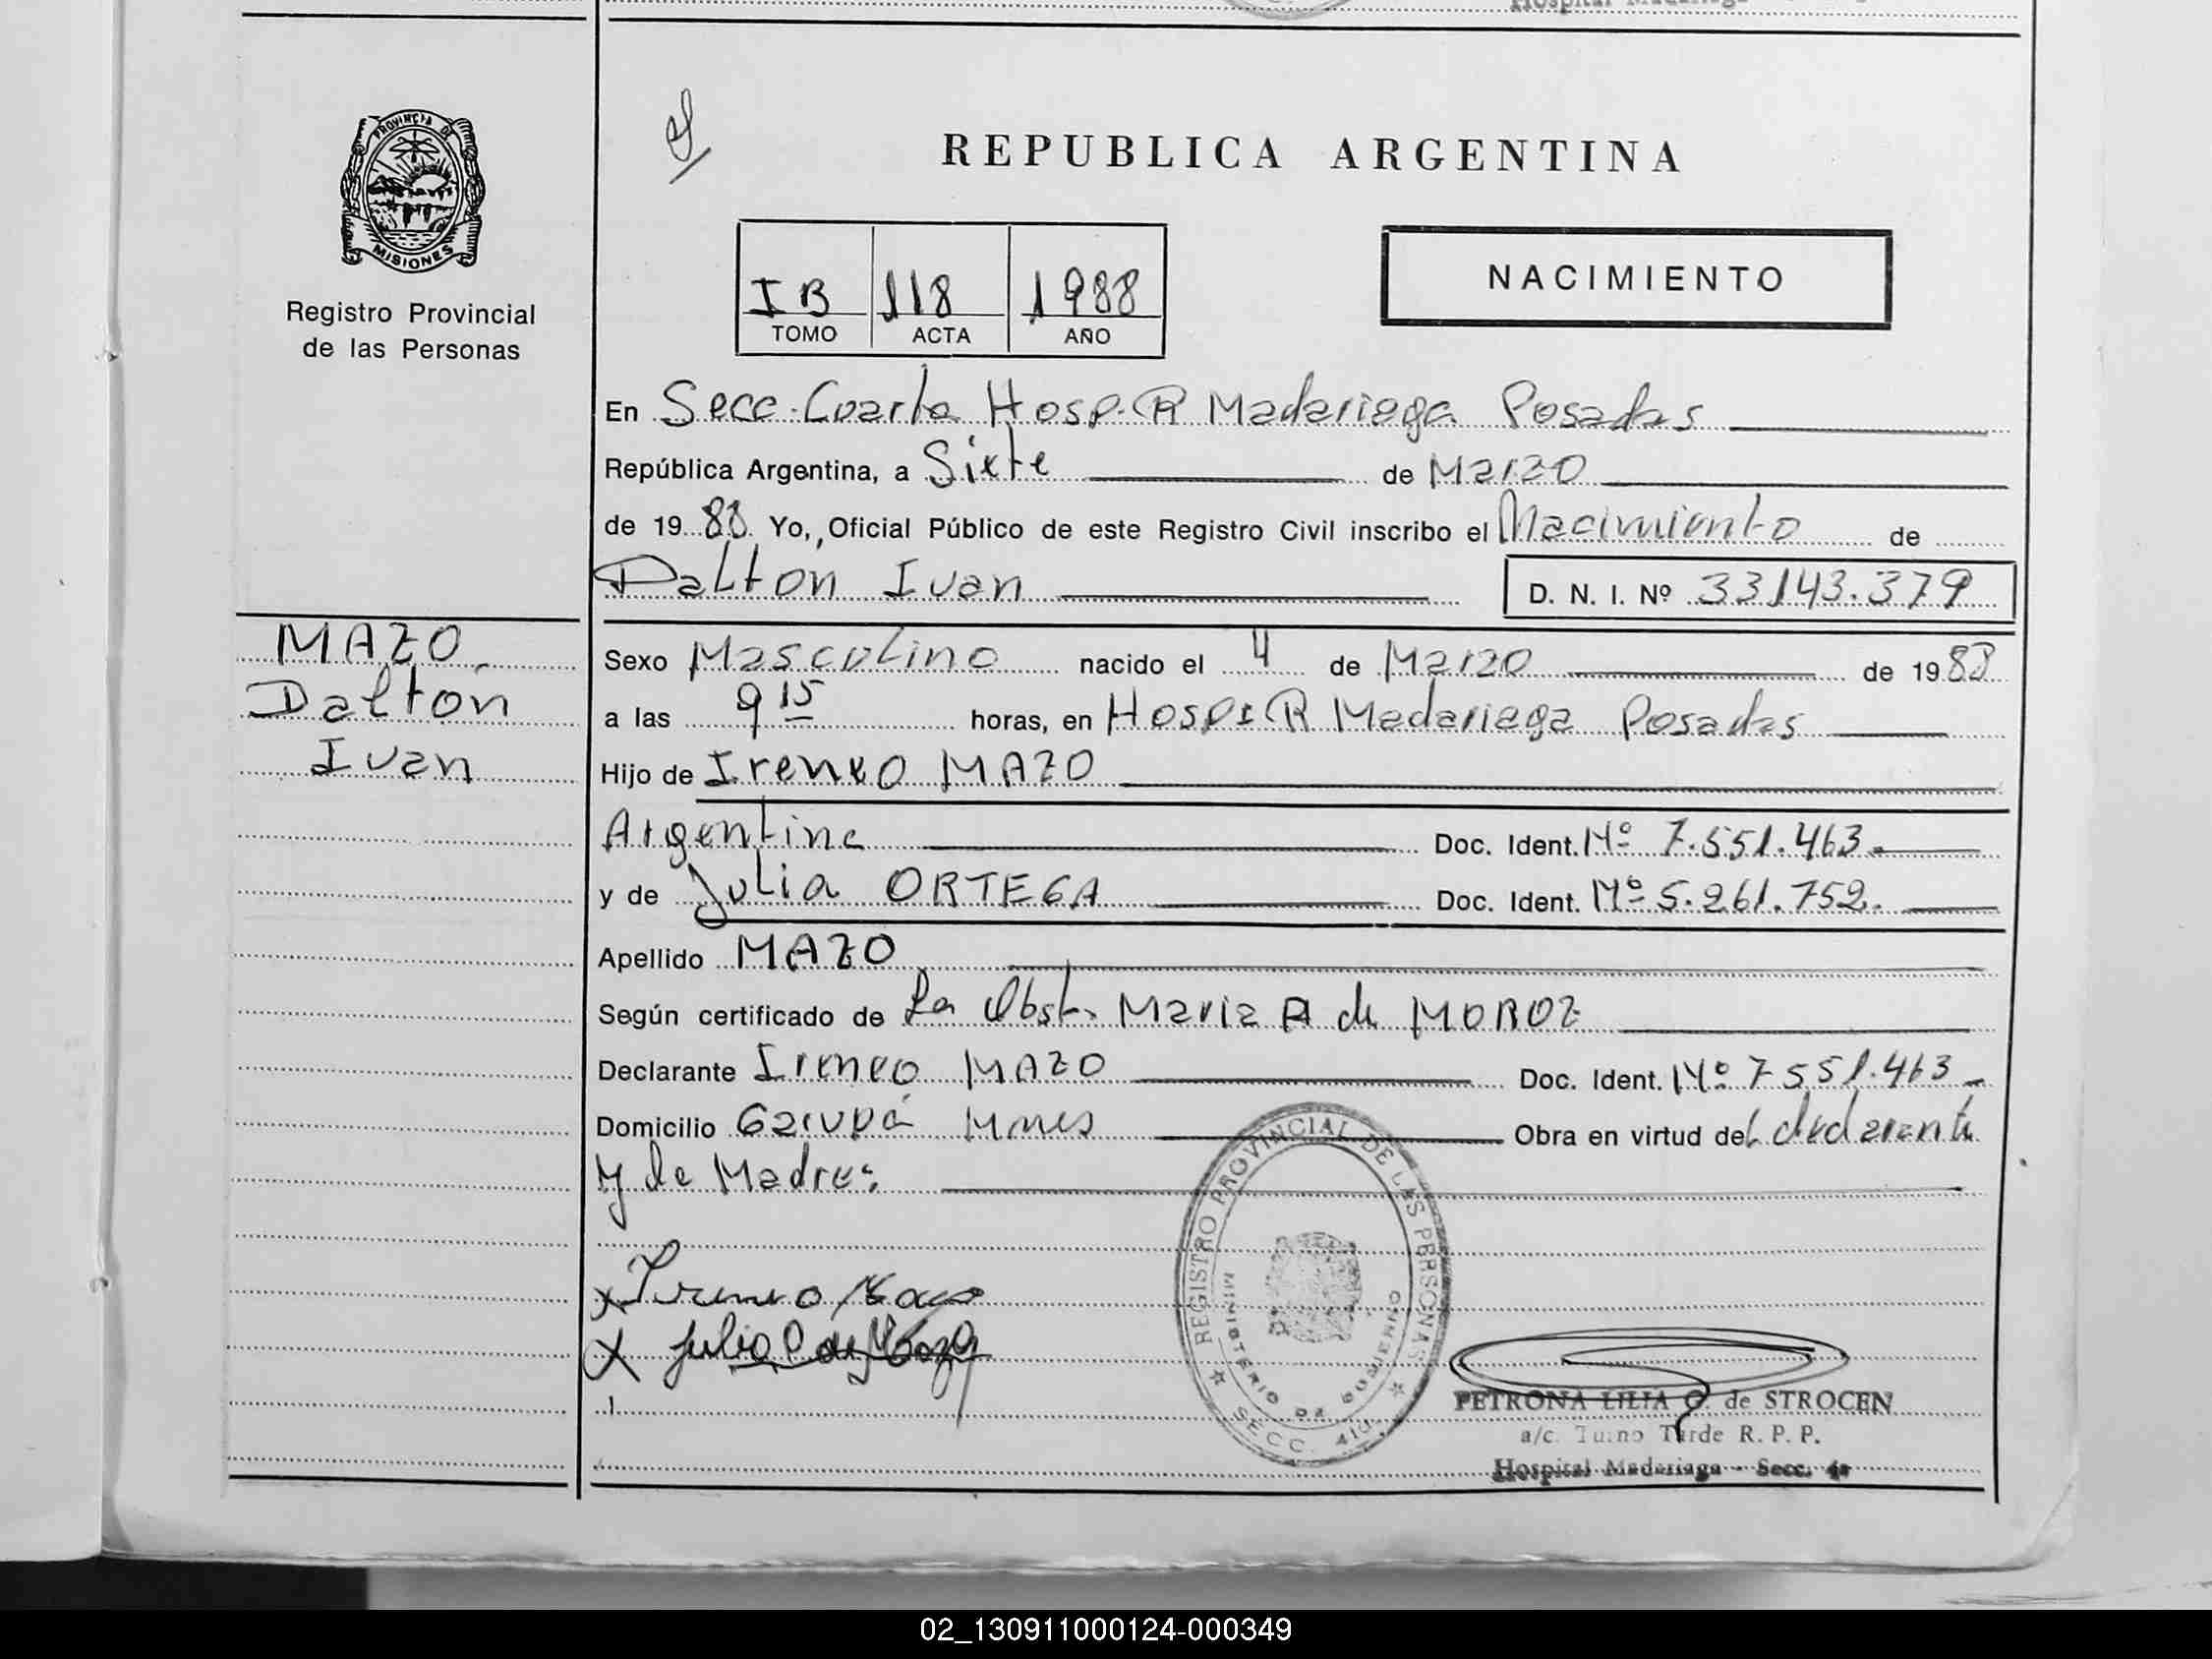 Hospital Madariaga
PROVINCIA DE
MISIONES
Registro Provincial
de las Personas
REPUBLICA ARGENTINA
IB 118 1988
TOMO ACTA AÑO
NACIMIENTO
En Secc. Cuarta Hosp. R Madariaga Posadas
República Argentina, a Siete de Marzo
de 1988 Yo, Oficial Público de este Registro Civil inscribo el Nacimiento de
Dalton Ivan D. N. I. Nº 33143.379
MAZO
Dalton
Ivan
Sexo Masculino nacido el 4 de Marzo de 1988
a las 9 15 horas, en Hosp. R Madariaga Posadas
Hijo de Ireneo MAZO
Argentina Doc. Ident. Nº 7.551.463.
y de Julia ORTEGA Doc. Ident. Nº 5.261.752.
Apellido MAZO
Según certificado de La Obst. Maria A de MOROZ
Declarante Ireneo MAZO Doc. Ident. Nº 7551.463
Domicilio Garupá Mnes Obra en virtud del declarante
y de Madre.
x Ireneo Mazo
X Julia O de Mazo
REGISTRO PROVINCIAL DE LAS PERSONAS
MINISTERIO DE GOBIERNO
SECC. 4ta.
PETRONA LILIA G. de STROCEN
a/c. Turno Tarde R. P. P.
Hospital Madariaga - Secc. 4a
02_130911000124-000349